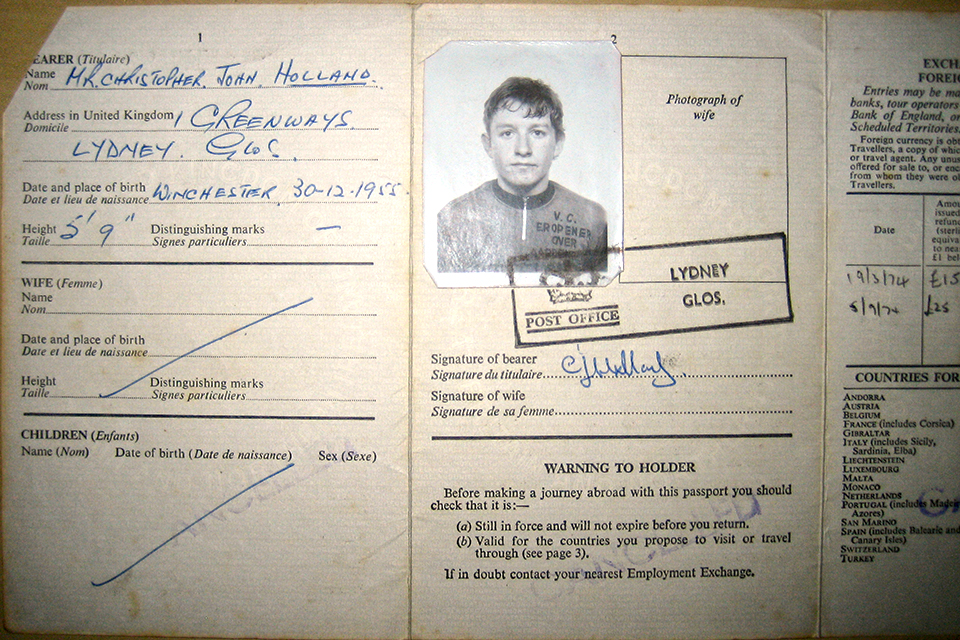 1
BEARER (Titulaire)
Name MR. CHRISTOPHER JOHN HOLLAND.
Nom
Address in United Kingdom 1 GREENWAYS.
Domicile
LYDNEY. GLOS.
Date and place of birth WINCHESTER, 30-12-1955.
Date et lieu de naissance
Height 5' 9" Distinguishing marks —
Taille Signes particuliers
WIFE (Femme)
Name
Nom
Date and place of birth
Date et lieu de naissance
Height Distinguishing marks
Taille Signes particuliers
CHILDREN (Enfants)
Name (Nom) Date of birth (Date de naissance) Sex (Sexe)
2
Photograph of
wife
V.C.
OVER
LYDNEY
GLOS.
POST OFFICE
Signature of bearer
Signature du titulaire
Signature of wife
Signature de sa femme
WARNING TO HOLDER
Before making a journey abroad with this passport you should
check that it is:—
(a) Still in force and will not expire before you return.
(b) Valid for the countries you propose to visit or travel
through (see page 3).
If in doubt contact your nearest Employment Exchange.
CANCELLED
EXCH
FOREI
Entries may be ma
banks, tour operators
Bank of England, or
Scheduled Territories.
Foreign currency is obt
Travellers, a copy of whic
or travel agent. Any unus
offered for sale to, or enc
from whom they were ob
Travellers.
Amou
issued
refund
Date (sterli
equiva
to nea
£1 bel
19/3/74 £15
5/9/74 £25
COUNTRIES FOR
ANDORRA
AUSTRIA
BELGIUM
FRANCE (includes Corsica)
GIBRALTAR
ITALY (includes Sicily,
Sardinia, Elba)
LIECHTENSTEIN
LUXEMBOURG
MALTA
MONACO
NETHERLANDS
PORTUGAL (includes Madei
Azores)
SAN MARINO
SPAIN (includes Balearic and
Canary Isles)
SWITZERLAND
TURKEY